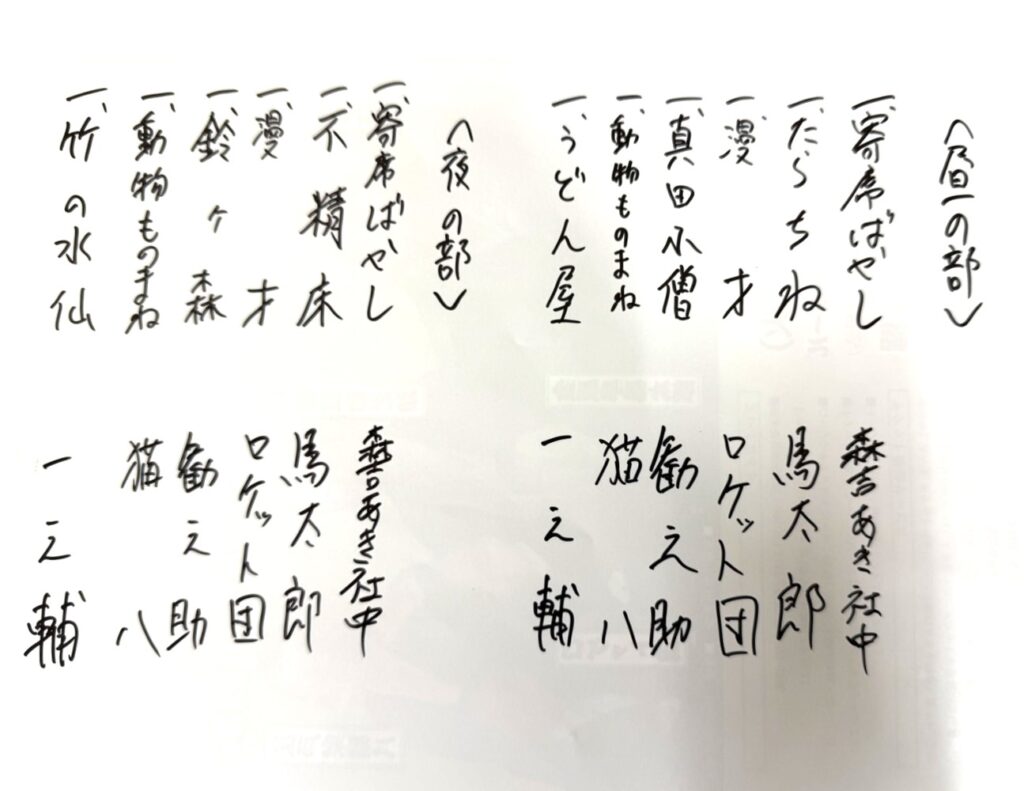 〈昼の部〉
一、寄席ばやし 森吉あき社中
一、たらちね 馬太郎
一、漫才 ロケット団
一、真田小僧 勧之助
一、動物ものまね 猫八
一、うどん屋 一之輔
〈夜の部〉
一、寄席ばやし 森吉あき社中
一、不精床 馬太郎
一、漫才 ロケット団
一、鈴ヶ森 勧之助
一、動物ものまね 猫八
一、竹の水仙 一之輔